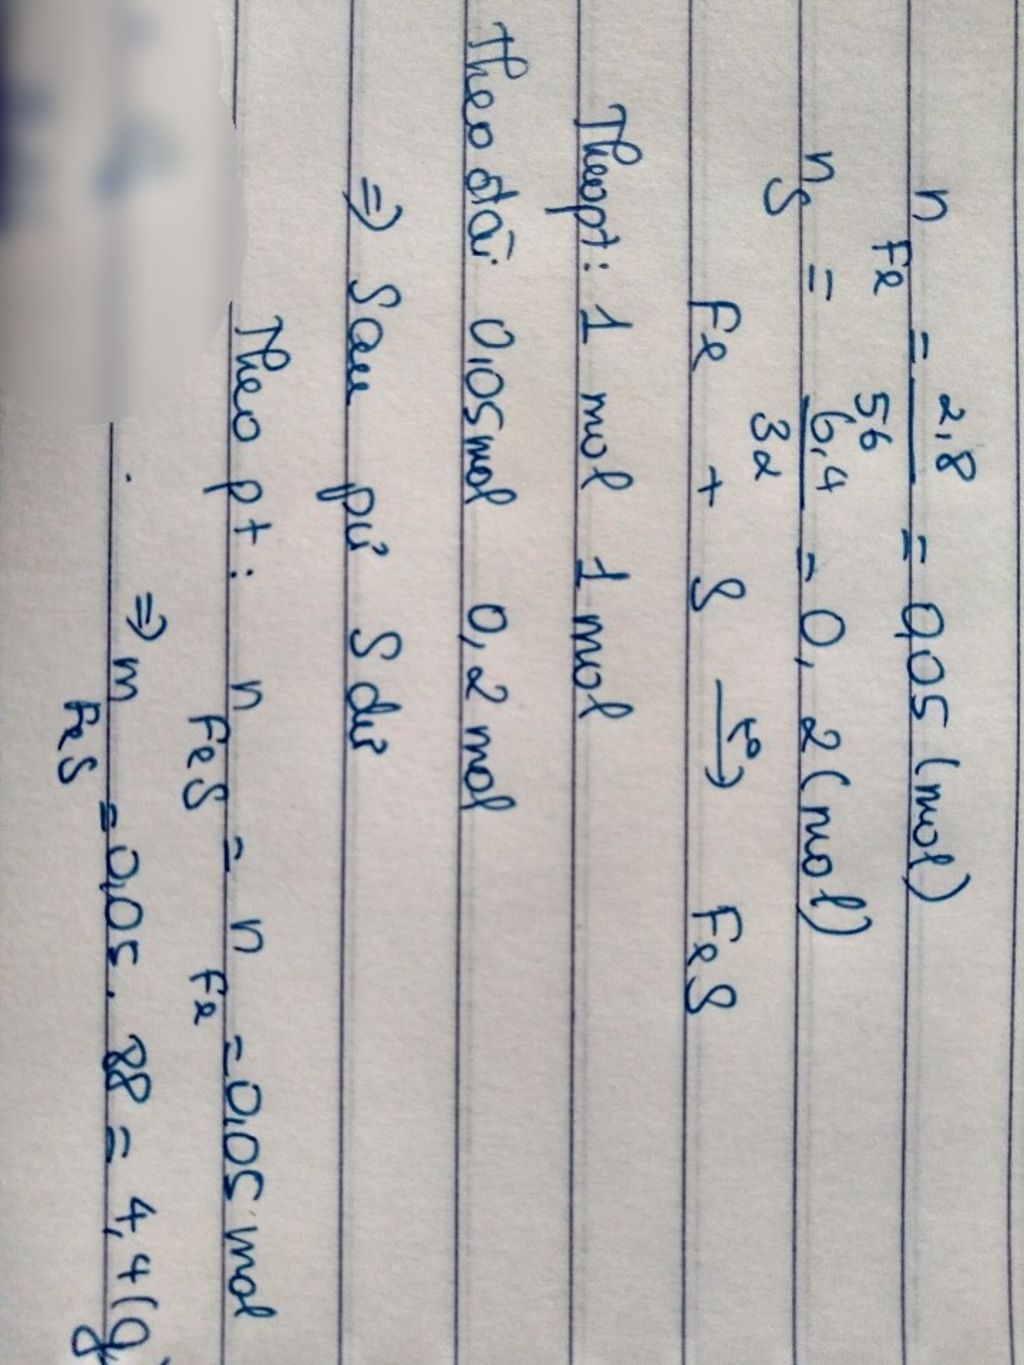 n Fe = 2,8 / 56 = 0,05 (mol)
n S = 6,4 / 32 = 0,2 (mol)
Fe + S t° → FeS
Theo pt: 1 mol 1 mol
Theo đài 0,05 mol 0,2 mol
=> Sau pứ S dư
Theo pt: n FeS = n Fe = 0,05 mol
=> m FeS = 0,05 . 88 = 4,4 (g)